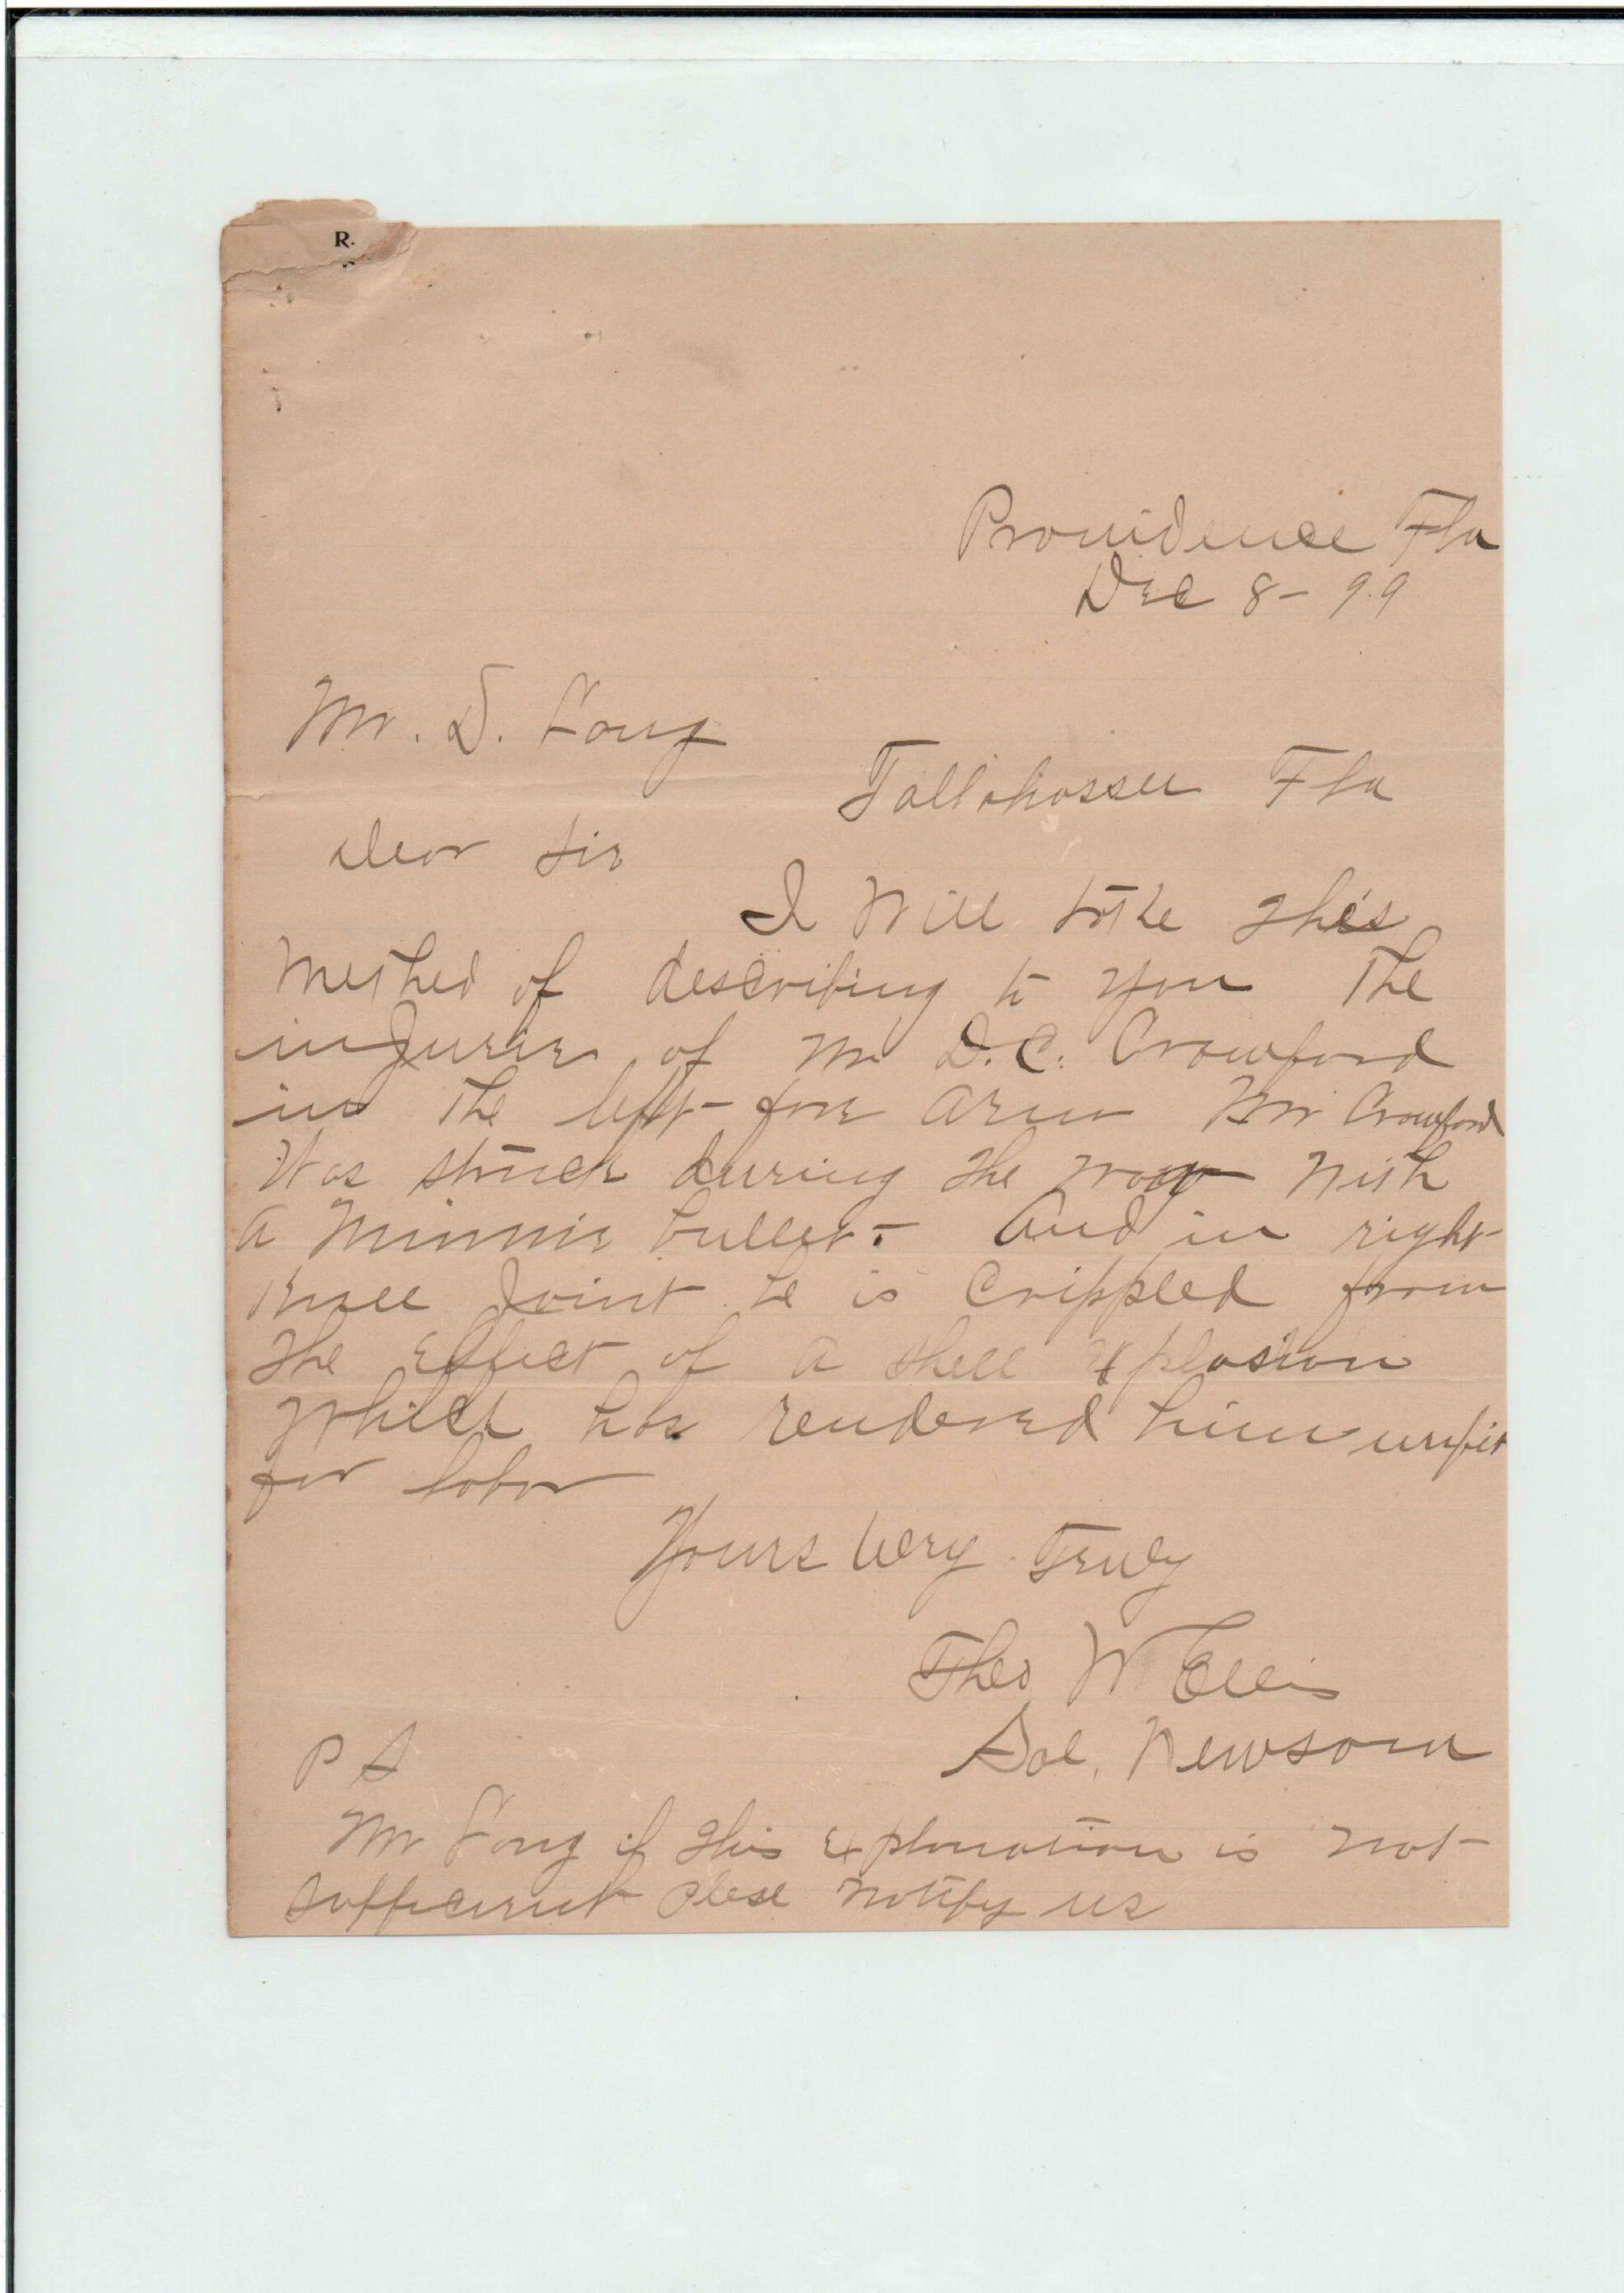 R.
Providence Fla
Dec 8 - 99
Mr. D. Lang
Tallahassee Fla
Dear Sir
I Will take this
Method of describing to you the
injuries of Mr D.C. Crawford
in the left fore arm Mr Crawford
Was struck during the war With
a Minnie bullet. - And in right
Knee Joint he is Crippled from
the effect of a shell explosion
Which has rendered him unfit
for labor
Yours Very Truly
Theo W Ellis
Sol. Newsom
P S
Mr Lang if this explanation is not
sufficient Plese notify us